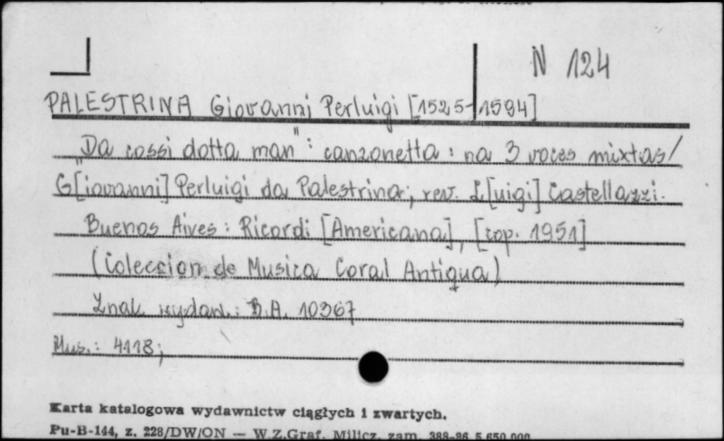 N 124
PALESTRINA Giovanni Perluigi [1525-1594]
"Da cossi dotta man" : canzonetta : na 3 voces mixtas/
G[iovanni] Perluigi da Palestrina; rev. L[uigi] Castellazzi.
Buenos Aires : Ricordi [Americana], [cop. 1951]
(Coleccion de Musica Coral Antigua)
Znak wydaw.: B.A. 10367
Mus.: 4118;
Karta katalogowa wydawnictw ciągłych i zwartych.
Pu-B-144, z. 228/DW/ON — W.Z.Graf. Milicz, zam. 388-86 5.650.000